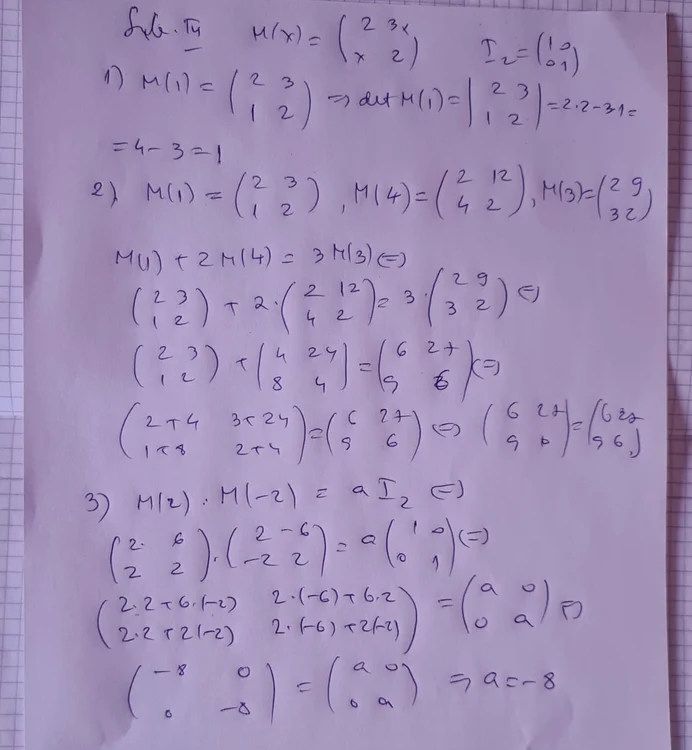 Sub. III M(x) = (2 3x
x 2) I₂ = (1 0
0 1)
1) M(1) = (2 3
1 2) => det M(1) = |2 3
1 2| = 2·2-3·1=
= 4 - 3 = 1
2) M(1) = (2 3
1 2), M(4) = (2 12
4 2), M(3) = (2 9
3 2)
M(1) + 2 M(4) = 3 M(3) (=)
(2 3
1 2) + 2·(2 12
4 2) = 3·(2 9
3 2) (=)
(2 3
1 2) + (4 24
8 4) = (6 27
9 6) (=)
(2+4 3+24
1+8 2+4) = (6 27
9 6) (=) (6 27
9 6) = (6 27
9 6)
3) M(2) · M(-2) = a I₂ (=)
(2 6
2 2) · (2 -6
-2 2) = a (1 0
0 1) (=)
(2·2+6·(-2) 2·(-6)+6·2
2·2+2(-2) 2·(-6)+2(-2)) = (a 0
0 a) (=)
(-8 0
0 -8) = (a 0
0 a) => a = -8